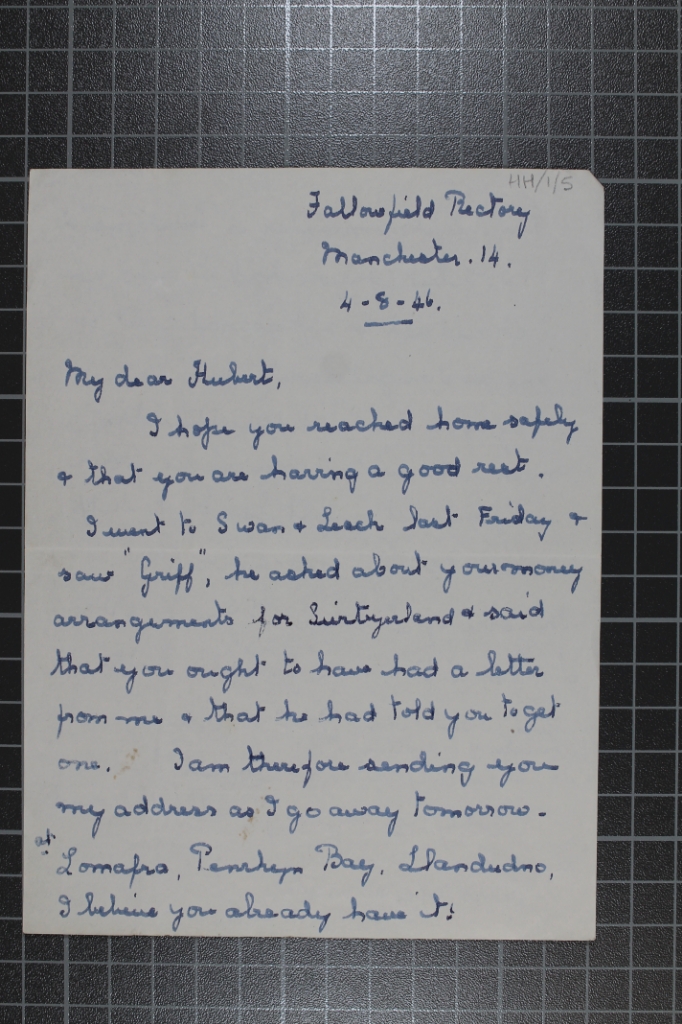 HH/1/5
Fallowfield Rectory
Manchester. 14.
4-8-46.
My dear Hubert,
I hope you reached home safely
& that you are having a good rest.
I went to Swan & Leach last Friday &
saw "Griff", he asked about your money
arrangements for & said
that you ought to have had a letter
from me & that he had told you to get
one. I am therefore sending you
my address as I go away tomorrow -
at
Lomafra, Penrhyn Bay, Llandudno,
I believe you already have it!